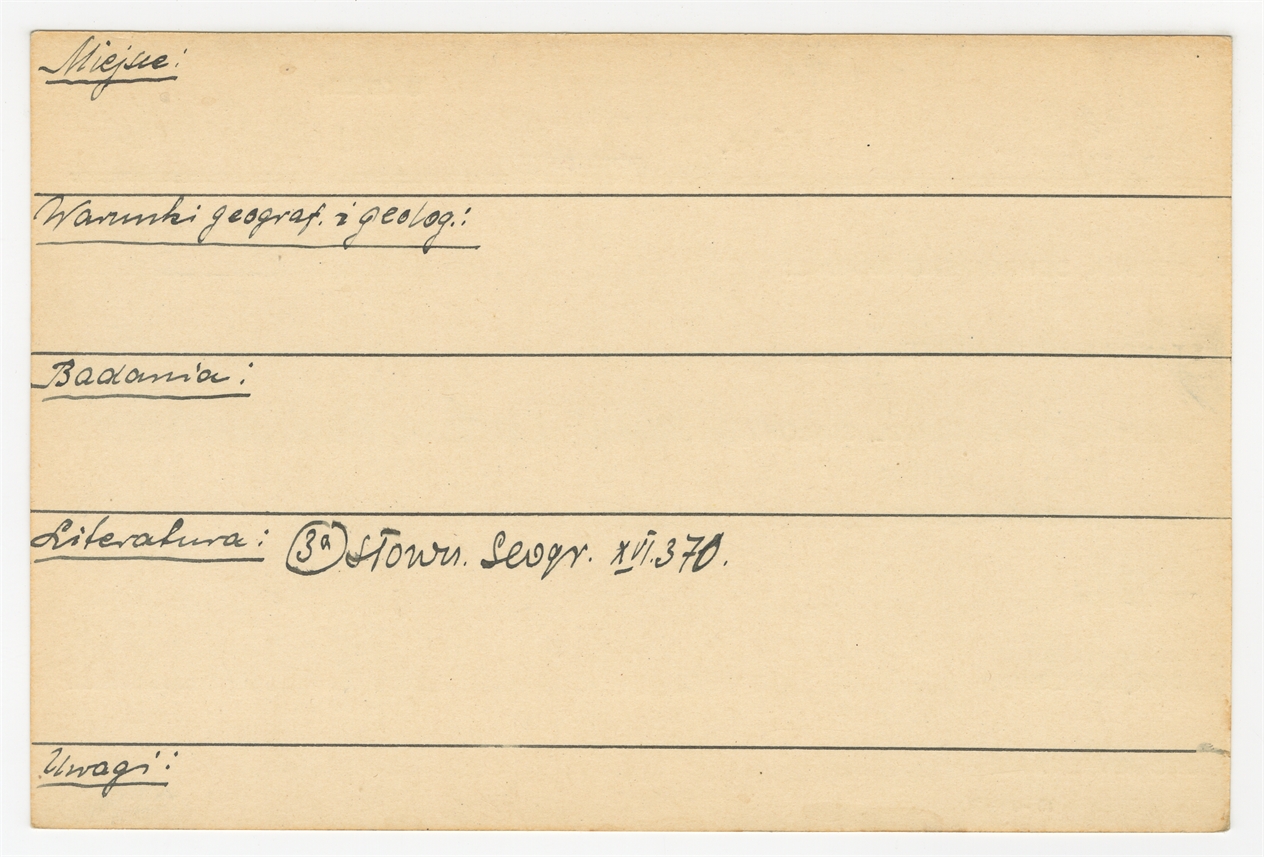 Miejsce:
Warunki geograf. i geolog.:
Badania:
Literatura: 3a Słown. Geogr. XVI.370.
Uwagi: